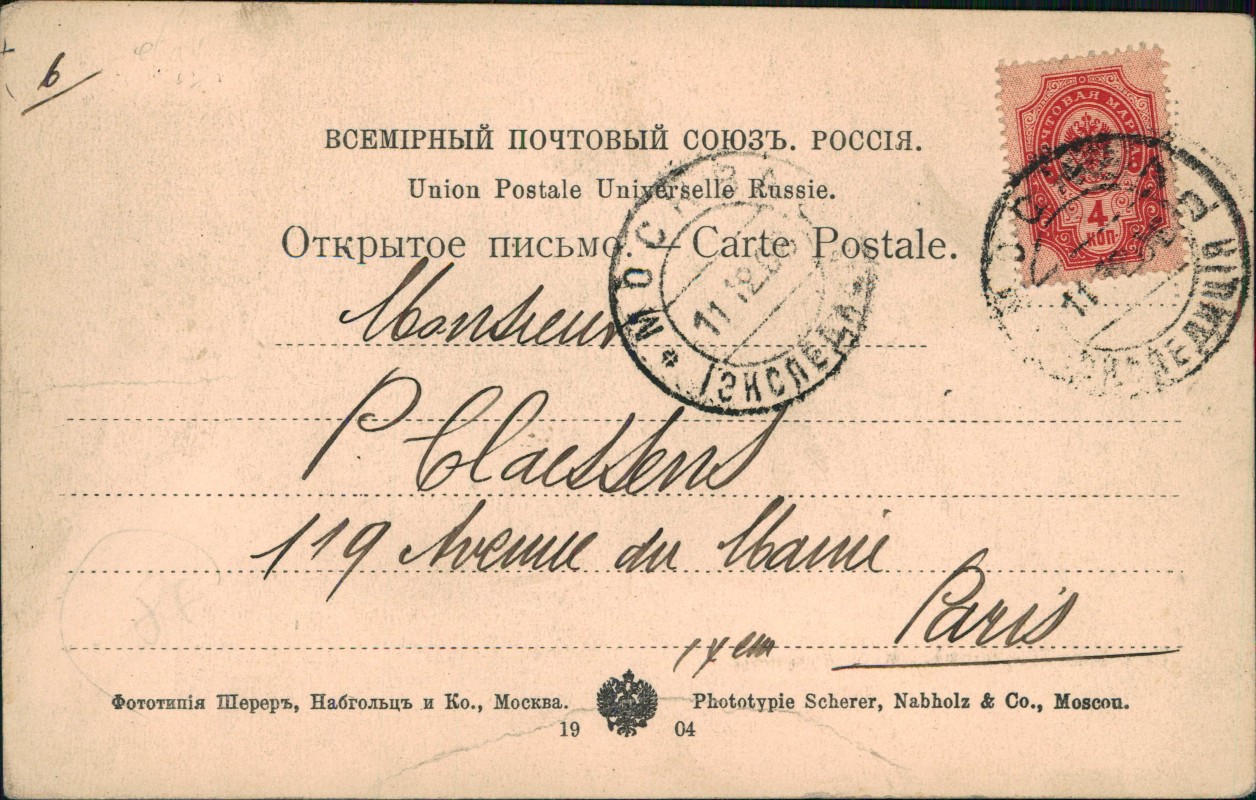 6
ПОЧТОВАЯ МАРКА
4
КОП
ВСЕМІРНЫЙ ПОЧТОВЫЙ СОЮЗЪ. РОССІЯ.
Union Postale Universelle Russie.
Открытое письмо. — Carte Postale.
МОСКВА
11 12
ЭКСПЕД
МОСКВА
11
ЭКСПЕДИЦІЯ
Monsieur
P Claessens
119 Avenue du Maine
Paris
Фототипія Шереръ, Набгольцъ и Ко., Москва.
Phototypie Scherer, Nabholz & Co., Moscou.
19 04